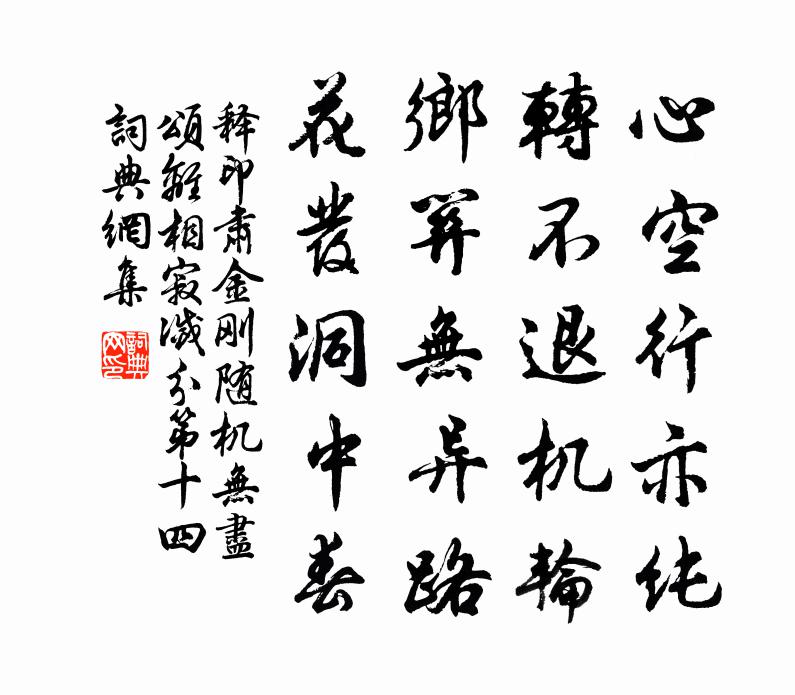 心空行亦纯
轉不退机輪
鄉關無异路
花發洞中春
释印肃金刚随机無盡
頌離相寂滅分第十四
詞典網集
詞典网印